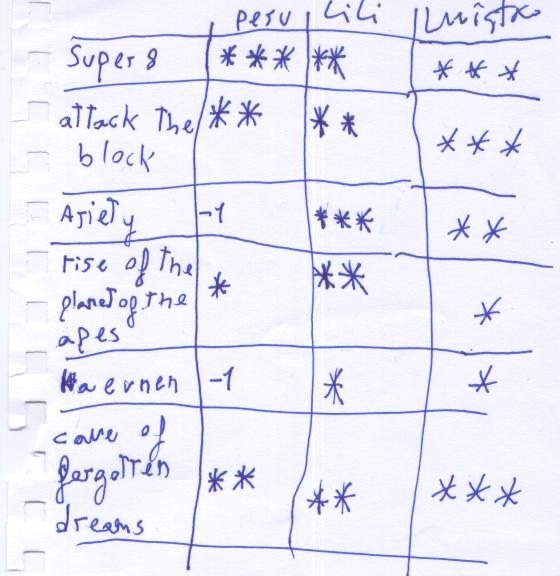 peru Lili Luigta
Super 8 *** ** ***
attack the ** ** ***
block
Ariety -1 *** **
rise of the * ** *
planet og the
apes
Haevnen -1 * *
cave of
forgotten ** ** ***
dreams